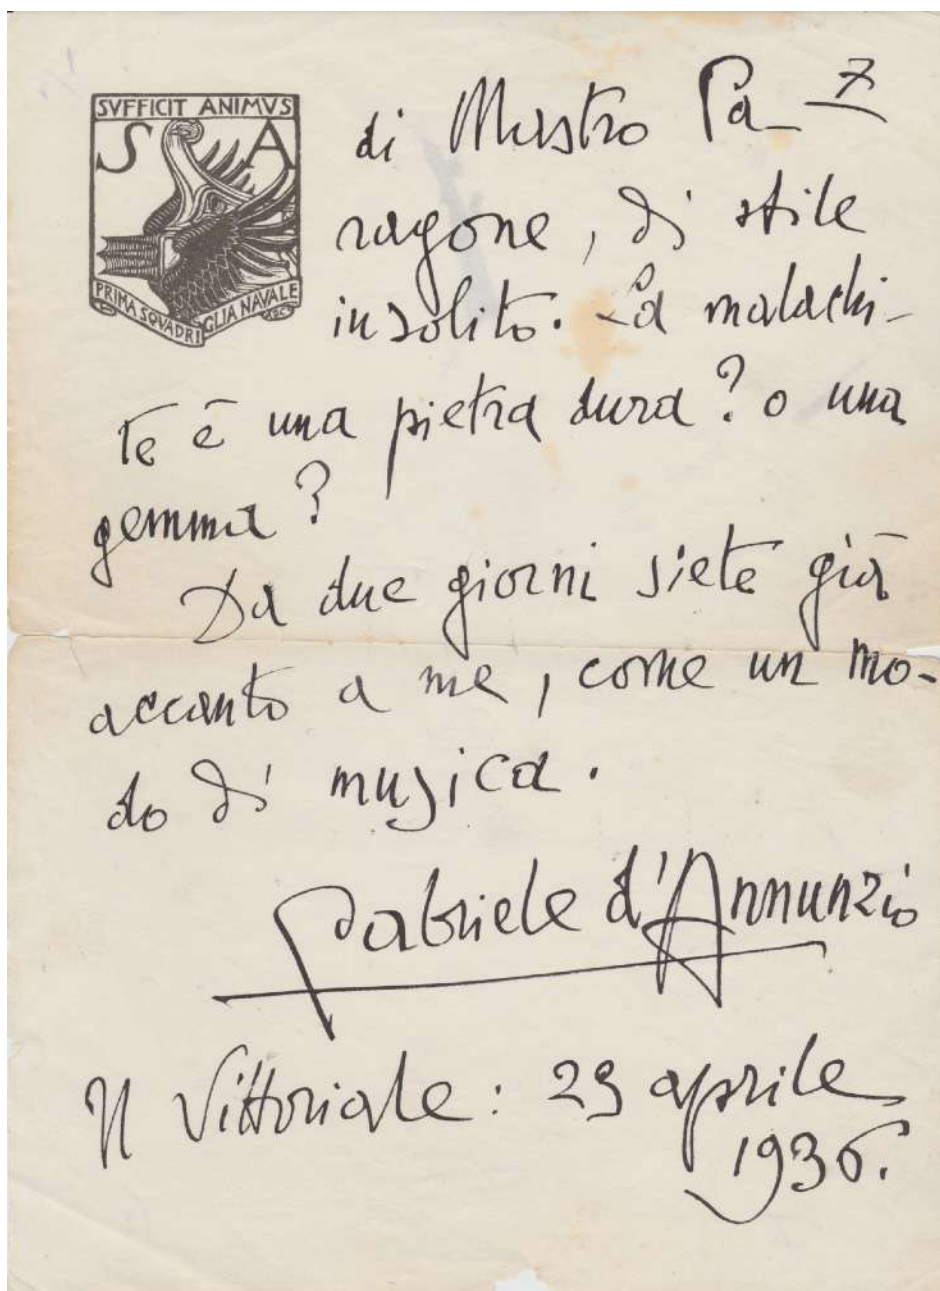 SVFFICIT ANIMVS
S A
PRIMA SQVADRIGLIA NAVALE
7
di Mastro Pa-
ragone, di stile
insolito. La malachi-
te è una pietra dura? o una
gemma?
Da due giorni siete già
accanto a me, come un mo-
do di musica.
Gabriele d'Annunzio
Il Vittoriale: 29 aprile
1936.